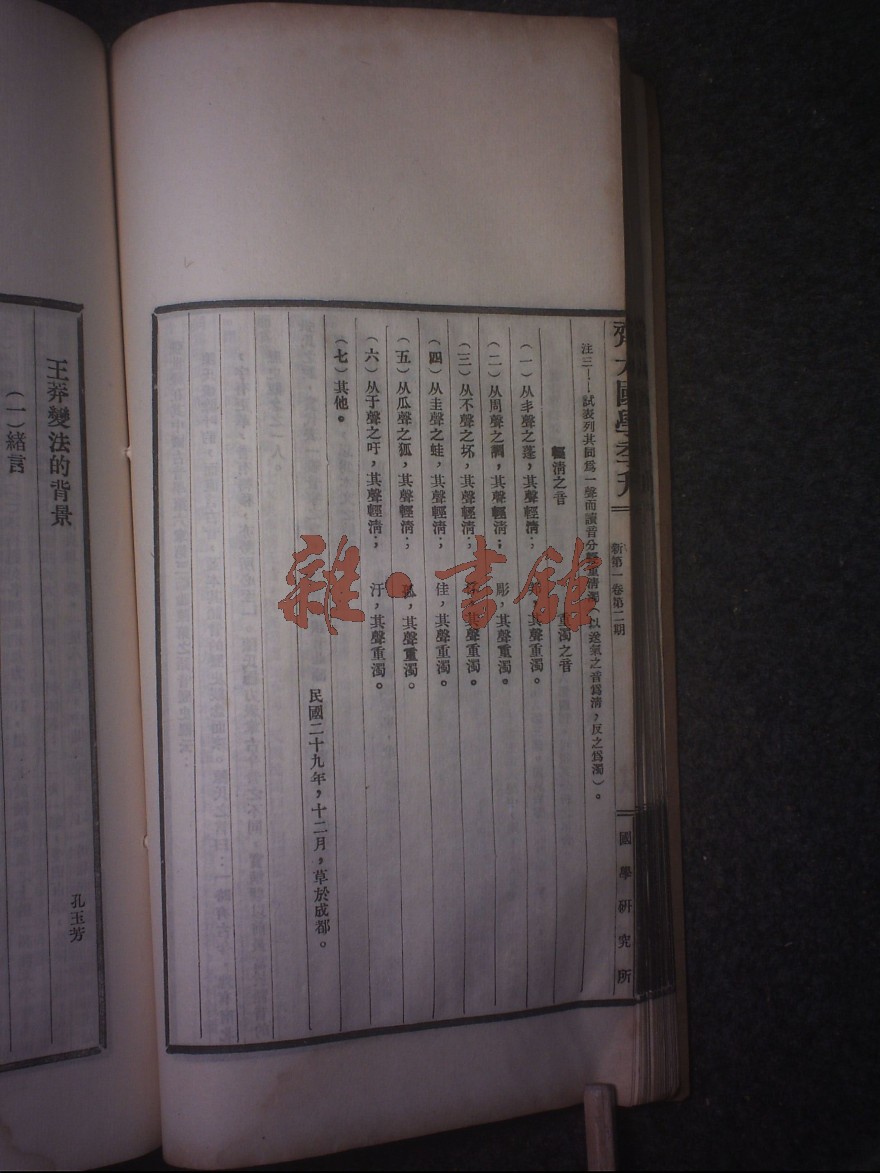 國學
新第一卷第二期
國學研究所
注三——試表列其同為一聲而讀音分輕重清濁(以送氣之音為清,反之為濁)。
輕清之音 重濁之音
(一)从丰聲之蓬,其聲輕清; 其聲重濁。
(二)从周聲之 其聲輕清; 彫,其聲重濁。
(三)从不聲之坏,其聲輕清; 其聲重濁。
(四)从圭聲之蛙,其聲輕清; 佳,其聲重濁。
(五)从瓜聲之狐,其聲輕清; 孤,其聲重濁。
(六)从于聲之吁,其聲輕清; 汙,其聲重濁。
(七)其他。
民國二十九年,十二月,草於成都。
孔玉芳
王莽變法的背景
(一)緒言
雜·書館